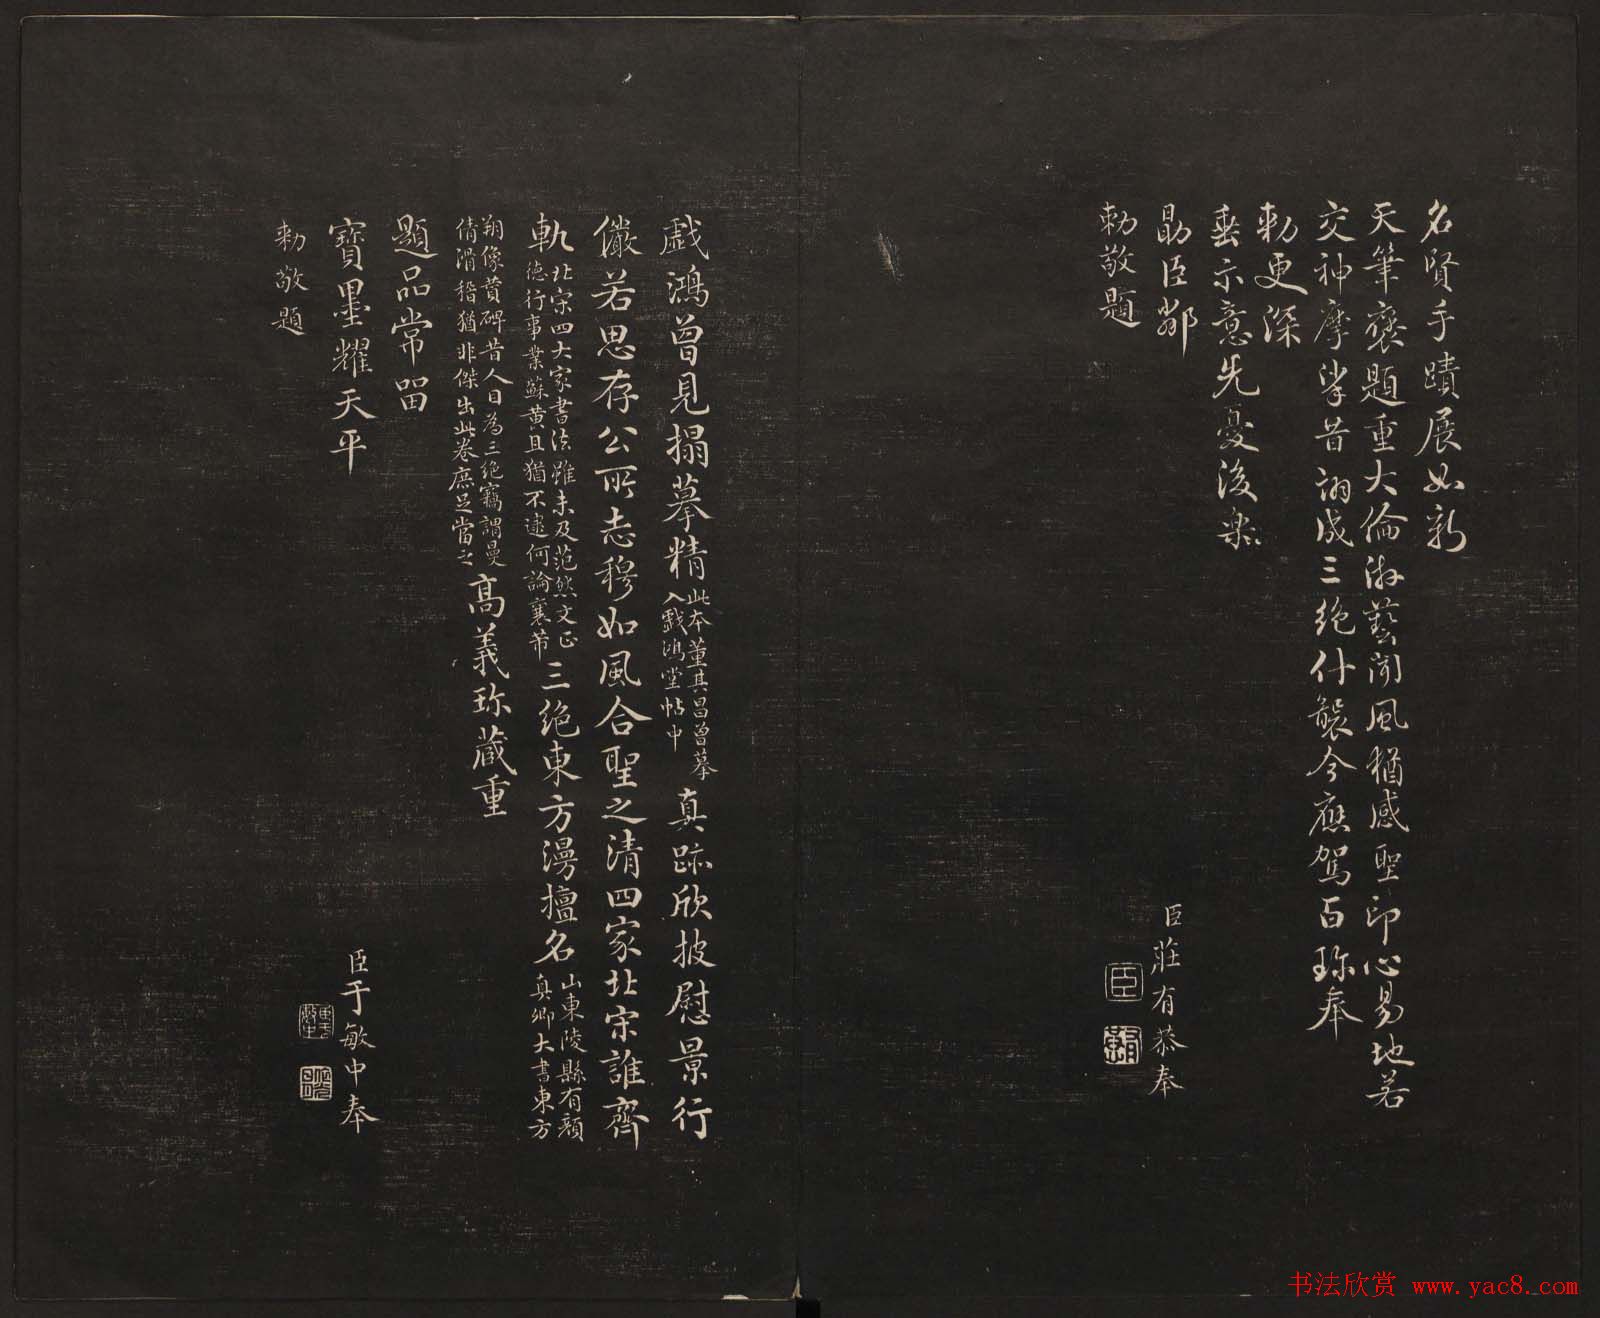 名賢手蹟展如新
天筆褒題重大倫游藝聞風猶感聖印心易地若
交神摩挲昔詡成三絕什襲今應駕百珍奉
勅更深
垂示意先憂後樂
勗臣鄰
臣莊有恭奉
勅敬題
戲鴻曾見搨摹精此本董其昌曾摹入戲鴻堂帖中真跡欣披慰景行
儼若思存公所志穆如風合聖之清四家北宋誰齊
軌北宋四大家書法雖未及范然文正德行事業蘇黄且猶不逮何論襄芾三絕東方漫擅名山東陵縣有顏真卿大書東方
朔像贊碑昔人目為三絕竊謂曼倩滑稽猶非傑出此卷庶足當之高義珍藏重
題品常留
寶墨耀天平
臣于敏中奉
勅敬題
书法欣赏 www.yac8.com